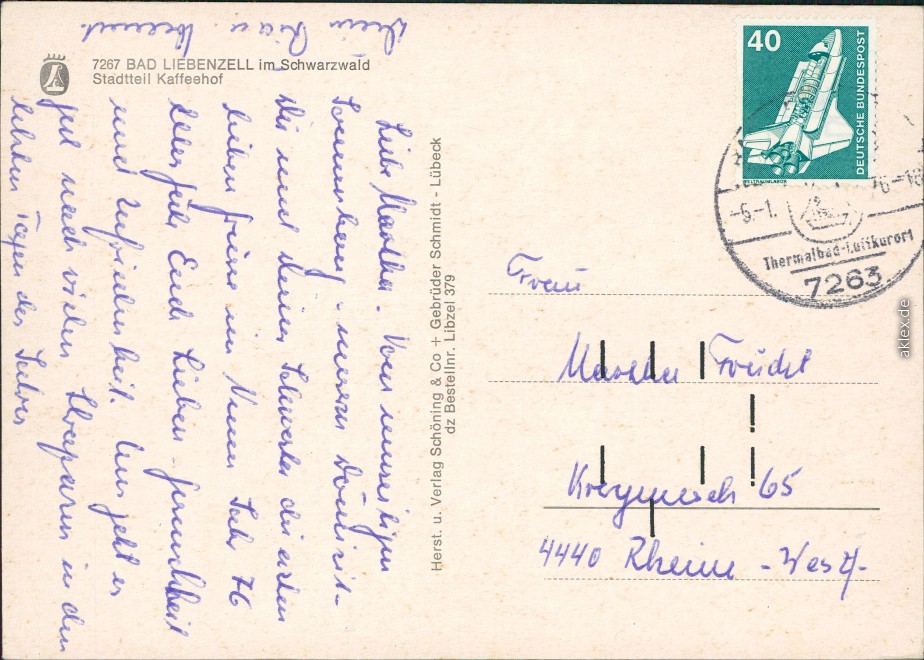 7267 BAD LIEBENZELL im Schwarzwald
Stadtteil Kaffeehof
Liebe Martha. Von unserem
Sonnenberg - unserem
Dir und Deiner Schwester die
lieben Grüsse im Neuen Jahr 76
Alles Euch Lieben - Gesundheit
und Zufriedenheit. Uns geht es
gut nach vielen Strapazen in den
letzten Tagen des Jahres
Dein
Herst. u. Verlag Schöning & Co + Gebrüder Schmidt - Lübeck
dz Bestellnr. Libzel 379
40
DEUTSCHE BUNDESPOST
WELTRAUMLABOR
-5.-1.
76-18
Thermalbad-Luftkurort
7263
Frau
Martha Frücht
65
4440 Rheine - Westf.
aklex.de